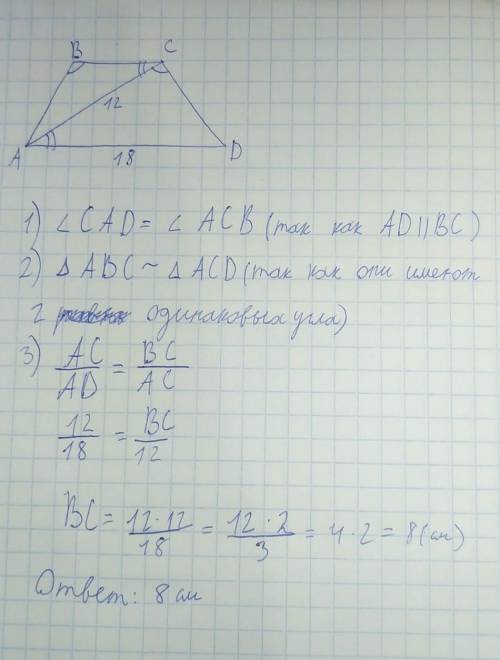 B
C
12
A
18
D
1) ∠CAD = ∠ACB (так как AD || BC)
2) ΔABC ~ ΔACD (так как они имеют
2 одинаковых угла)
3) AC/AD = BC/AC
12/18 = BC/12
BC = 12·12/18 = 12·2/3 = 4·2 = 8 (см)
Ответ: 8 см